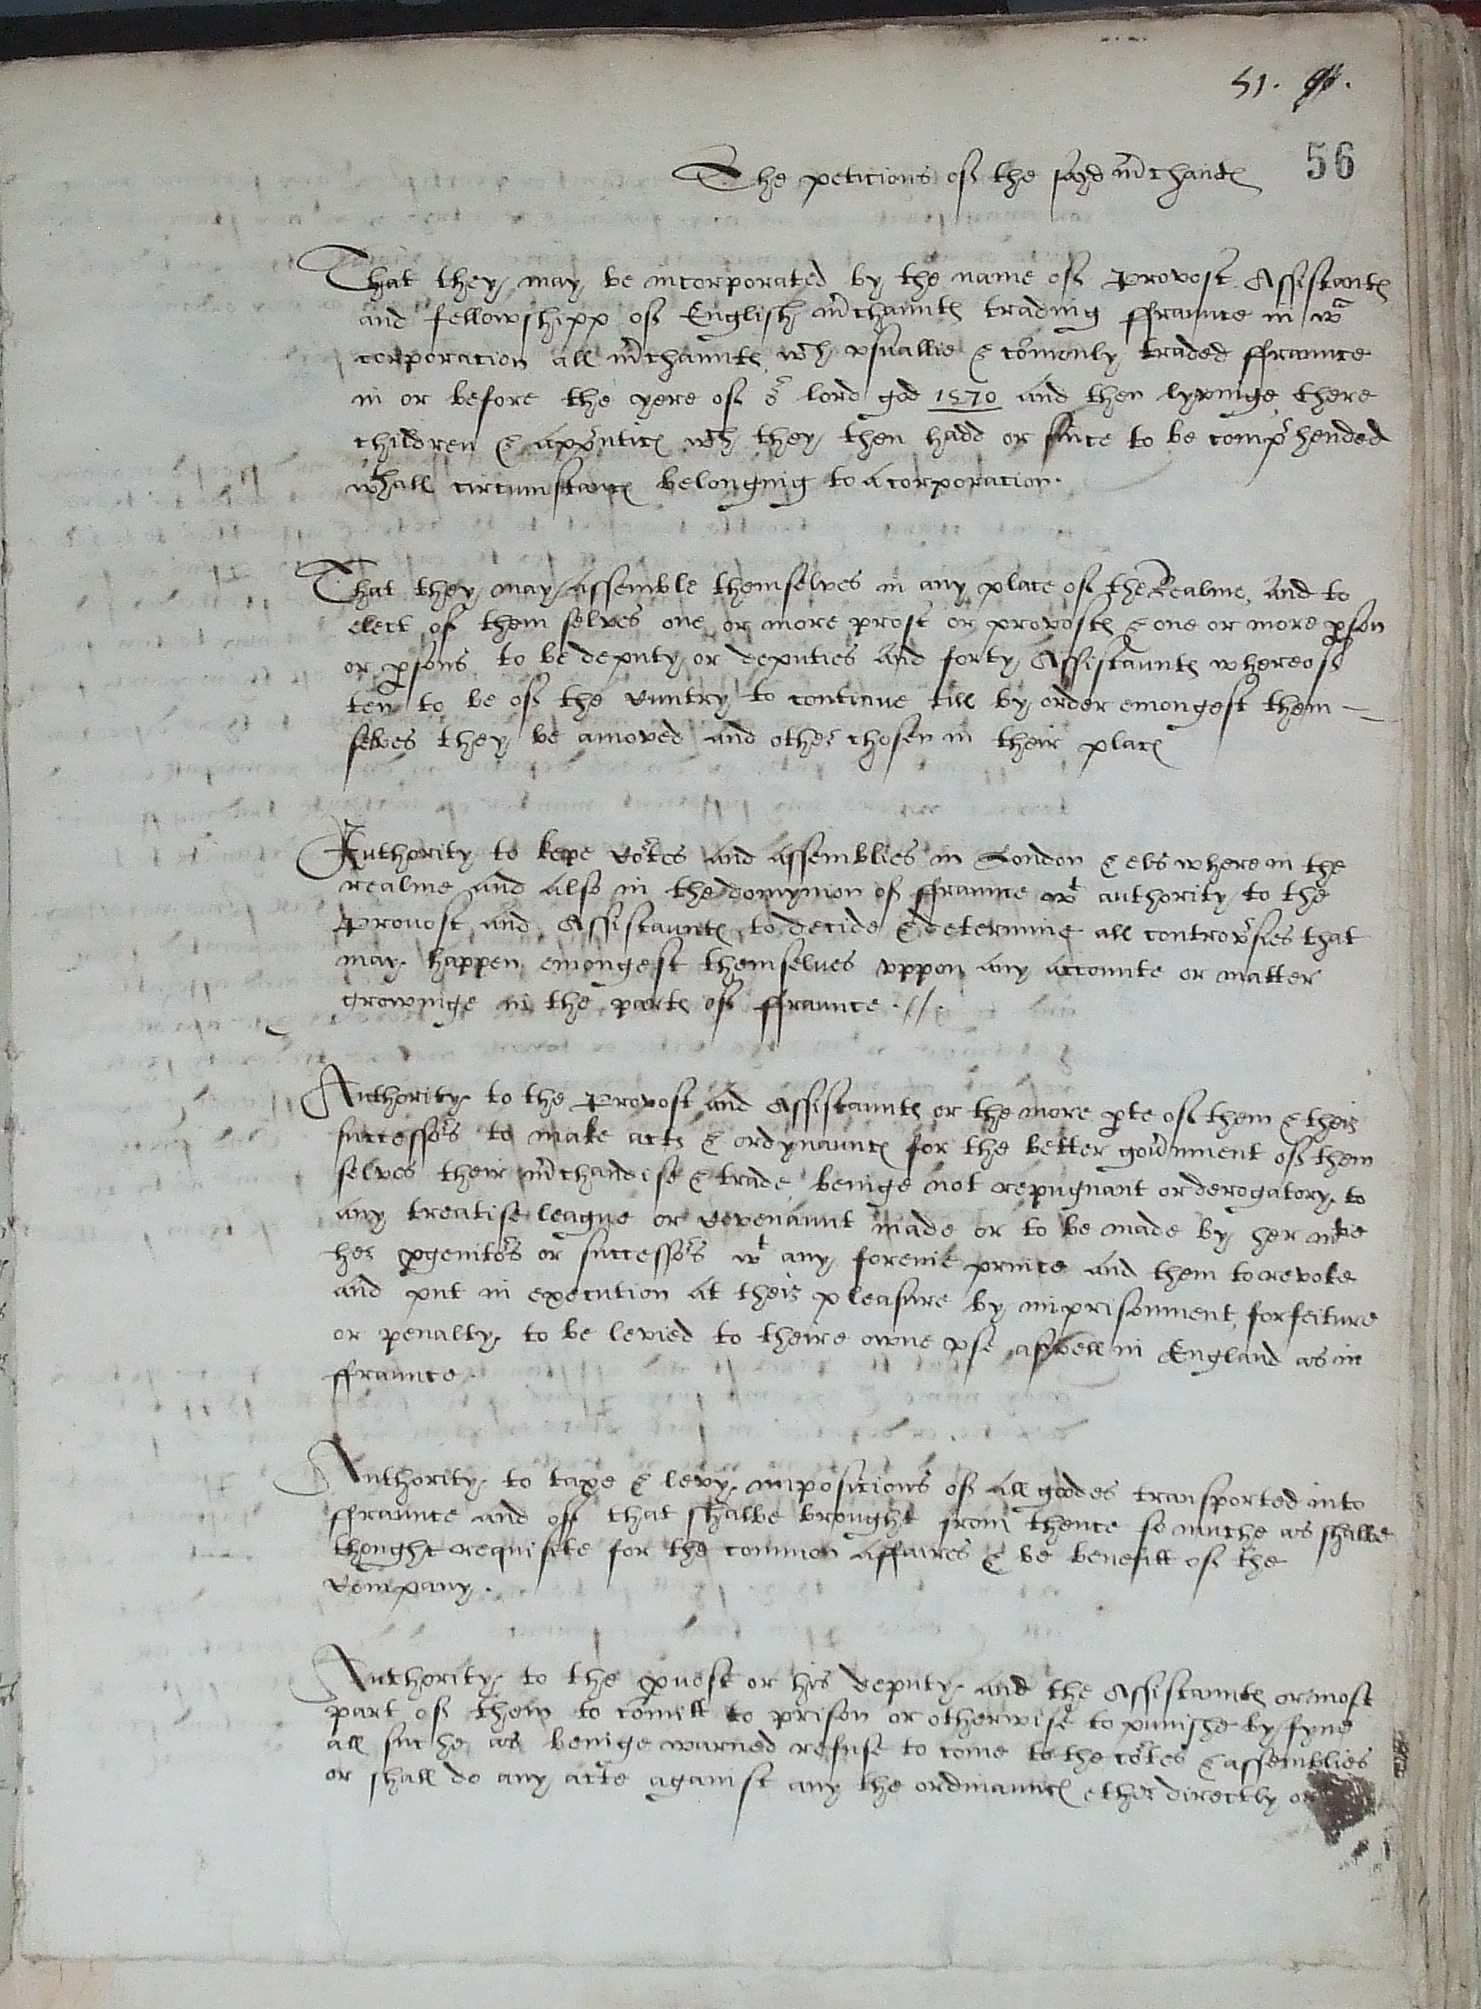 51.
56
The peticions of the sayd m̃chandꝭ
That they may be incorporated by the name of Provost Assistantꝭ
and fellowshipp of English m̃chauntꝭ trading ffraunce in wch
corporacion all m̃chauntꝭ wch vsuallie & com̃only traded ffraunce
in or before the yere of or lord god 1570 and then lyvinge there
children & apprẽnticꝭ wch they then hadd or since to be comp̃hended
wthall circumstancꝭ belonging to a corporacion.
That they may assemble themselves in any place of the Realme, And to
elect of them selves one or more prost or provostꝭ & one or more ꝑson
or ꝑsons to be deputy or deputies And forty Assistauntꝭ whereof
ten to be of the Cuntry to continue till by order emongest them
selves they be amoved and other chosen in their placꝭ
Authority to kepe Cortes and assemblies in London & elswhere in the
realme and also in the domynion of ffraunce wt authority to the
Provost and Assistauntꝭ to decide & determine all controṽsies that
may happen emongest themselues vppon any accounte or matter
growinge in the partꝭ of ffraunce.//.
Authority to the Provost and Assistauntꝭ or the more ꝑte of them & their
successors to make actꝭ & ordynauncꝭ for the better goṽnment of them
selves their m̃chandise & trade beinge not repugnant or derogatory to
any treatise league or Covenaunt made or to be made by her mtie
her ꝓgenitors or successors wt any forenie prince and them to revoke
and put in execution at their pleasure by imprisonment, forfeiture
or penalty to be levied to theire owne vse aswell in England as in
ffraunce.
Authority to taxe & levy imposicions of all goodes transported into
ffraunce and of that shalbe brought from thence so muche as shalbe
thought requisite for the common affaires & be benefitt of the
Company.
Authority to the ꝓuost or his deputy and the Assistauntꝭ or most
part of them to com̃itt to prison or otherwise to punishe by fyne
all suche as beinge warned refuse to come to the cortes & assemblies
or shall do any acte against any the ordinauncꝭ ether directly or